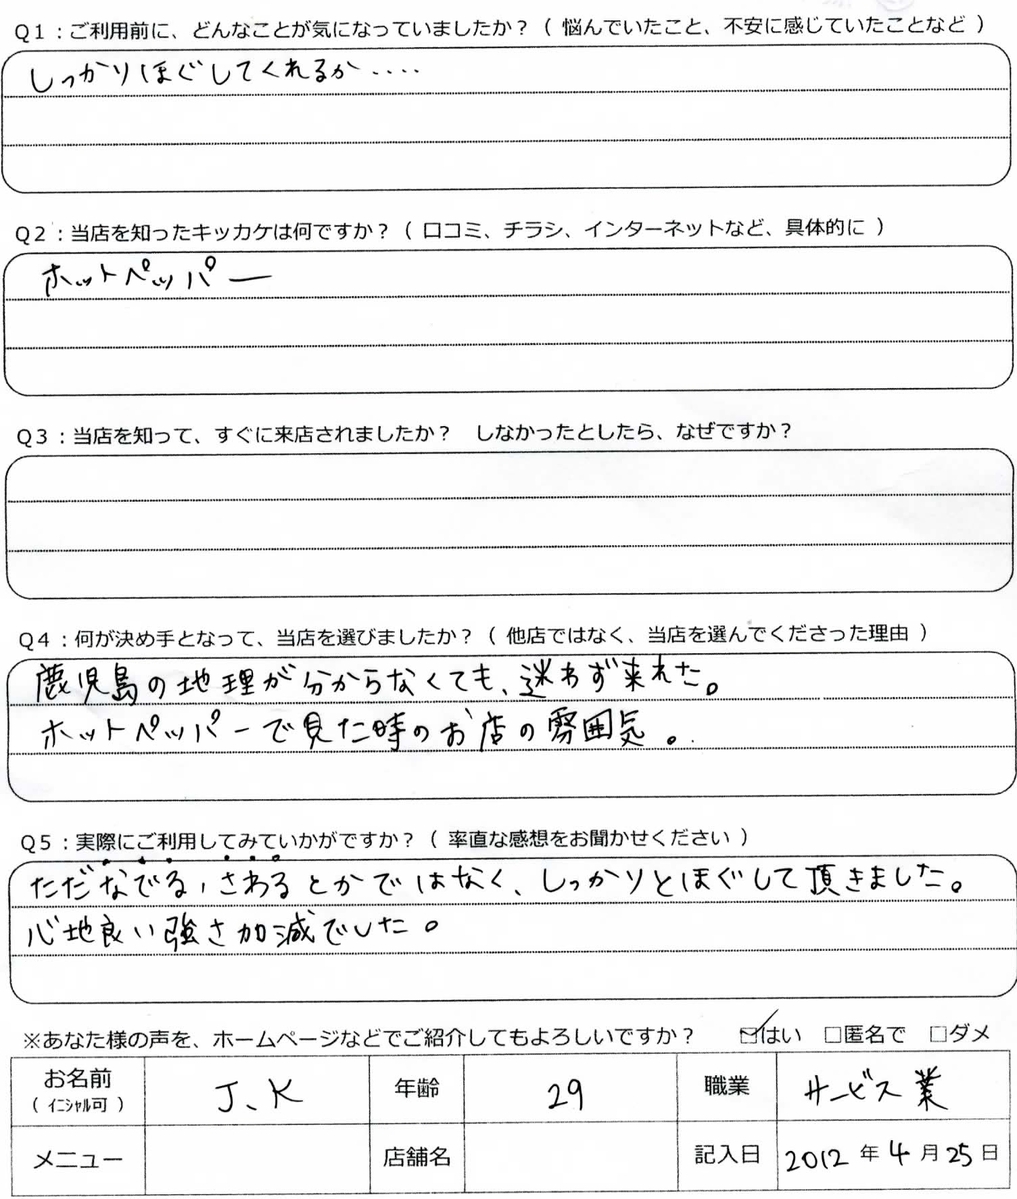 Q1：ご利用前に、どんなことが気になっていましたか？（ 悩んでいたこと、不安に感じていたことなど ）
しっかりほぐしてくれるか‥‥
Q2：当店を知ったキッカケは何ですか？（ 口コミ、チラシ、インターネットなど、具体的に ）
ホットペッパー
Q3：当店を知って、すぐに来店されましたか？　しなかったとしたら、なぜですか？
Q4：何が決め手となって、当店を選びましたか？（ 他店ではなく、当店を選んでくださった理由 ）
鹿児島の地理が分からなくても、迷わず来れた。
ホットペッパーで見た時のお店の雰囲気。
Q5：実際にご利用してみていかがですか？（ 率直な感想をお聞かせください ）
ただなでる，さわるとかではなく、しっかりとほぐして頂きました。
心地良い強さ加減でした。
※あなた様の声を、ホームページなどでご紹介してもよろしいですか？　☑はい　□匿名で　□ダメ
お名前（ ｲﾆｼｬﾙ可 ）　J、K　年齢　29　職業　サービス業
メニュー　店舗名　記入日　2012年4月25日